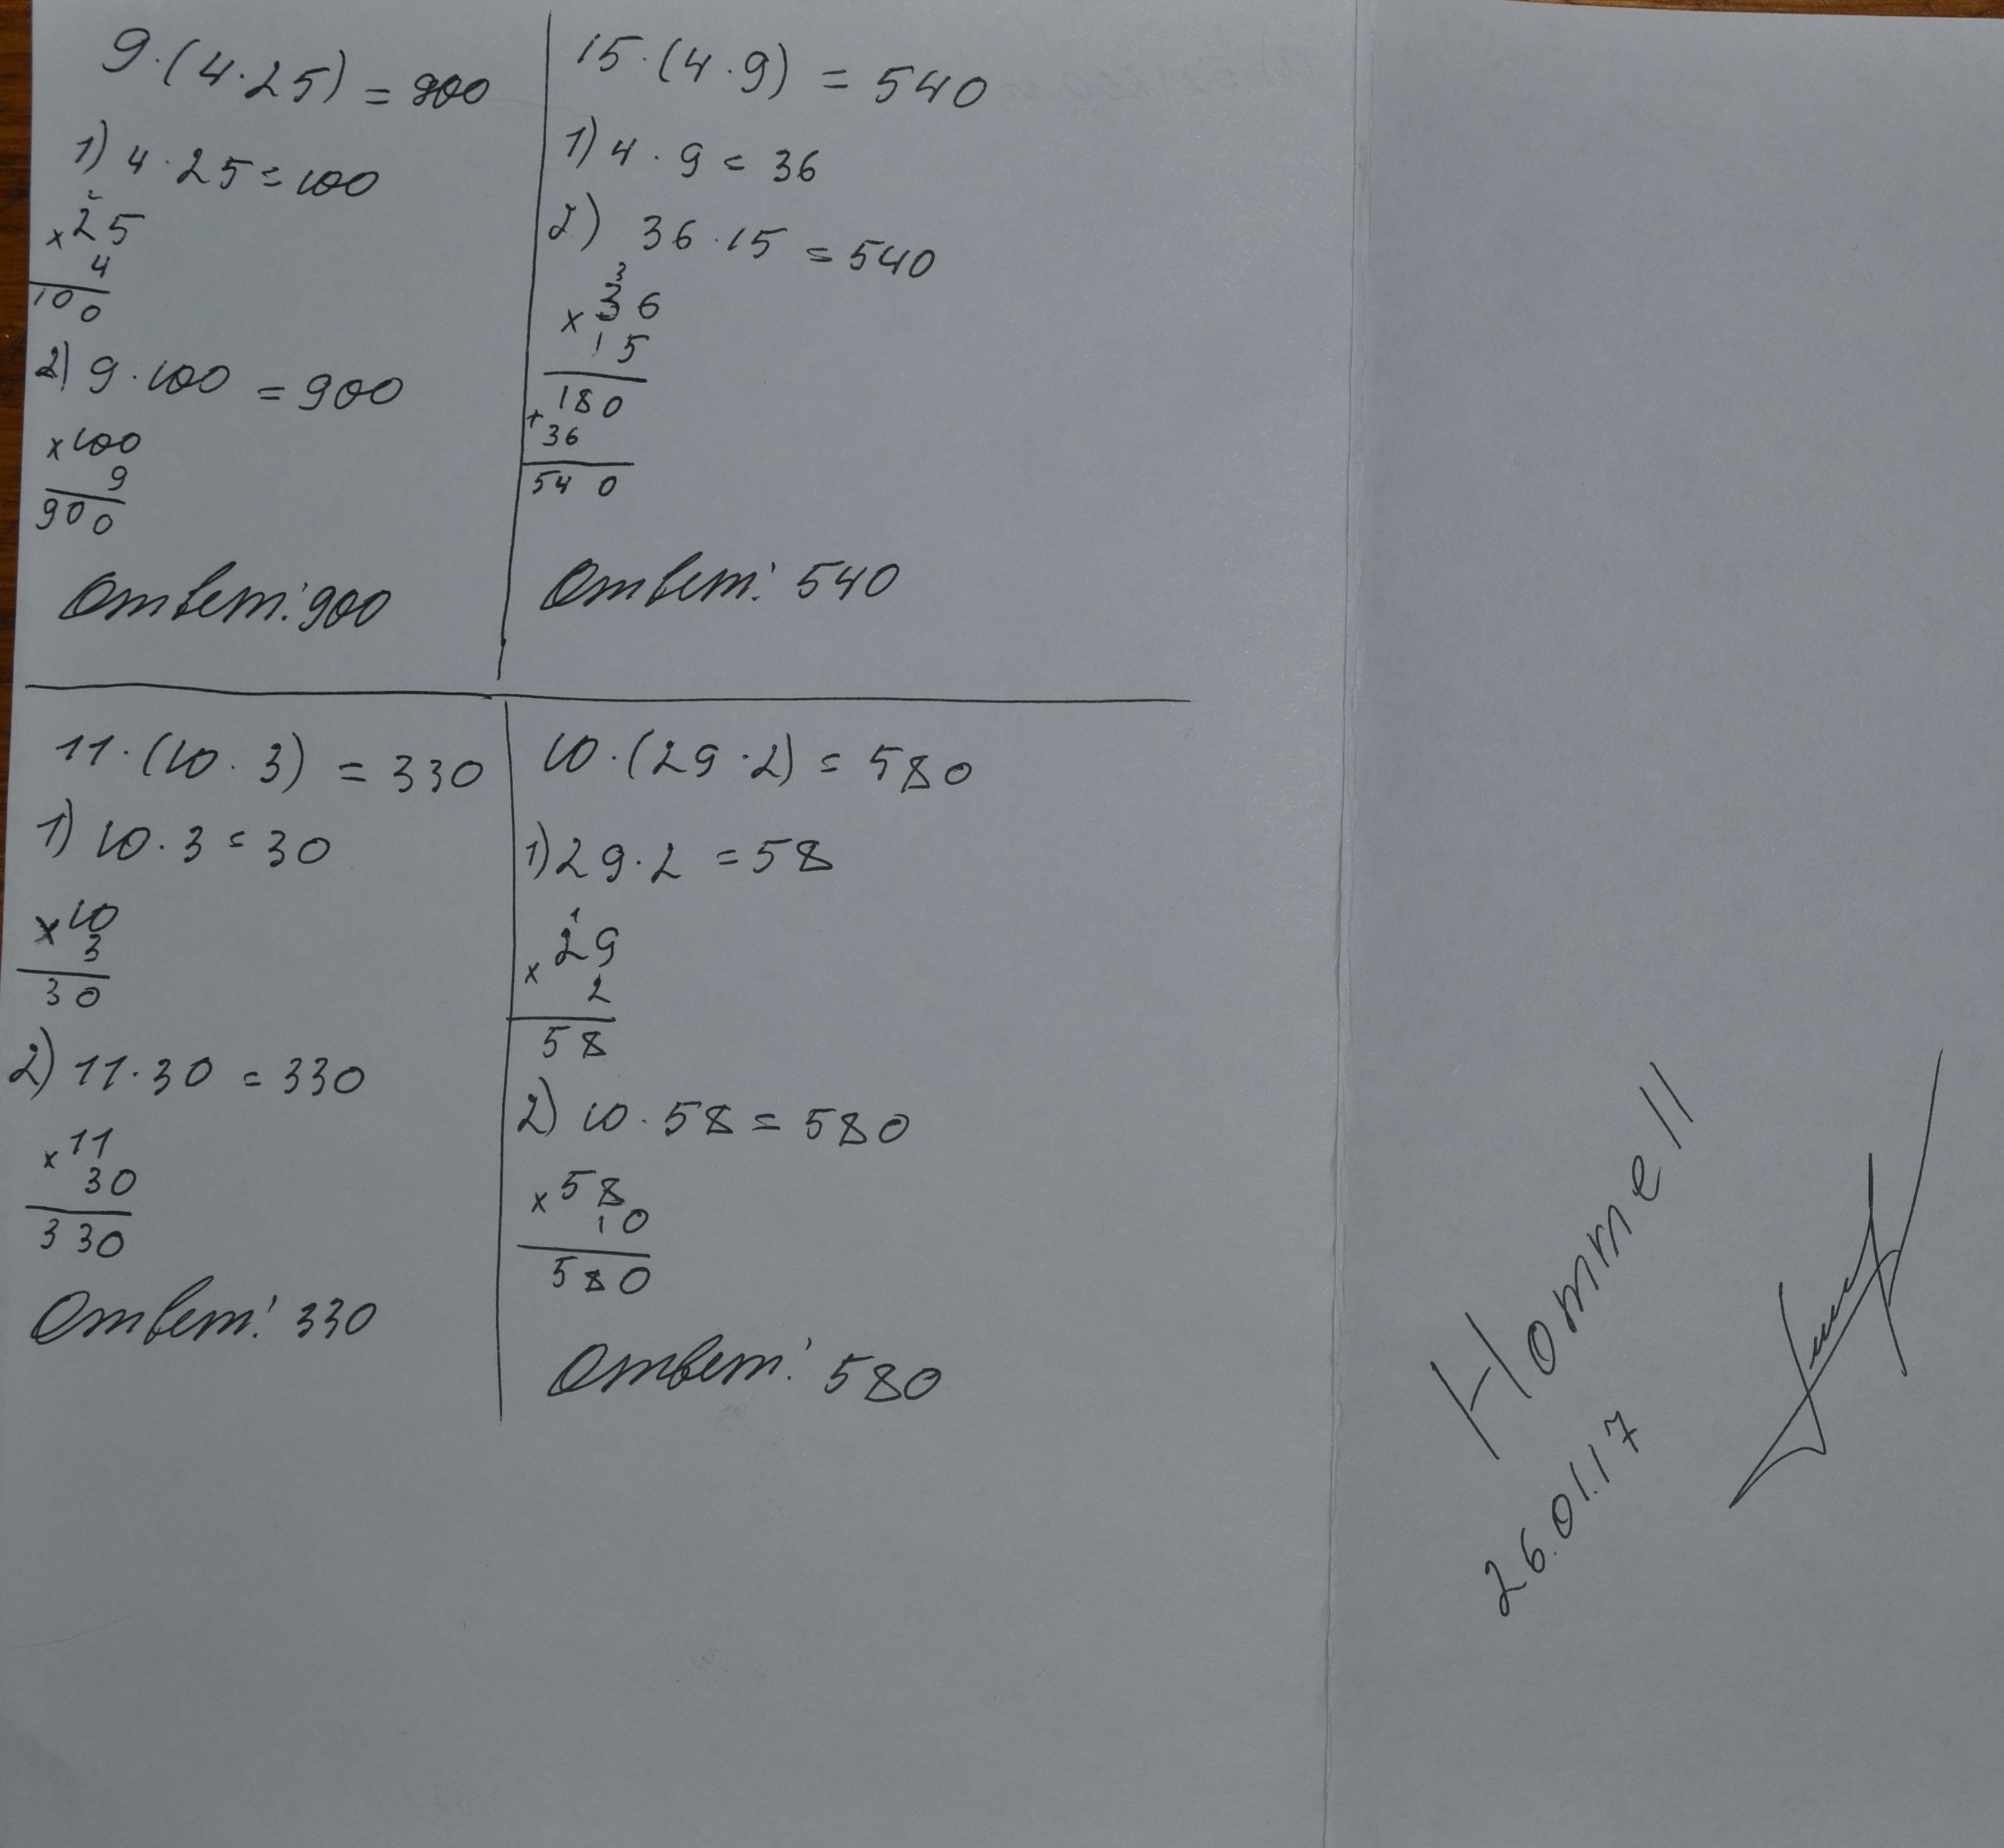 9·(4·25) = 900
1) 4·25 = 100
2
× 25
4
100
2) 9·100 = 900
× 100
9
900
Ответ: 900
15·(4·9) = 540
1) 4·9 = 36
2) 36·15 = 540
3
× 36
15
180
+ 36
540
Ответ: 540
11·(10·3) = 330
1) 10·3 = 30
× 10
3
30
2) 11·30 = 330
× 11
30
330
Ответ: 330
10·(29·2) = 580
1) 29·2 = 58
1
× 29
2
58
2) 10·58 = 580
× 58
10
580
Ответ: 580
Hommell
26.01.17